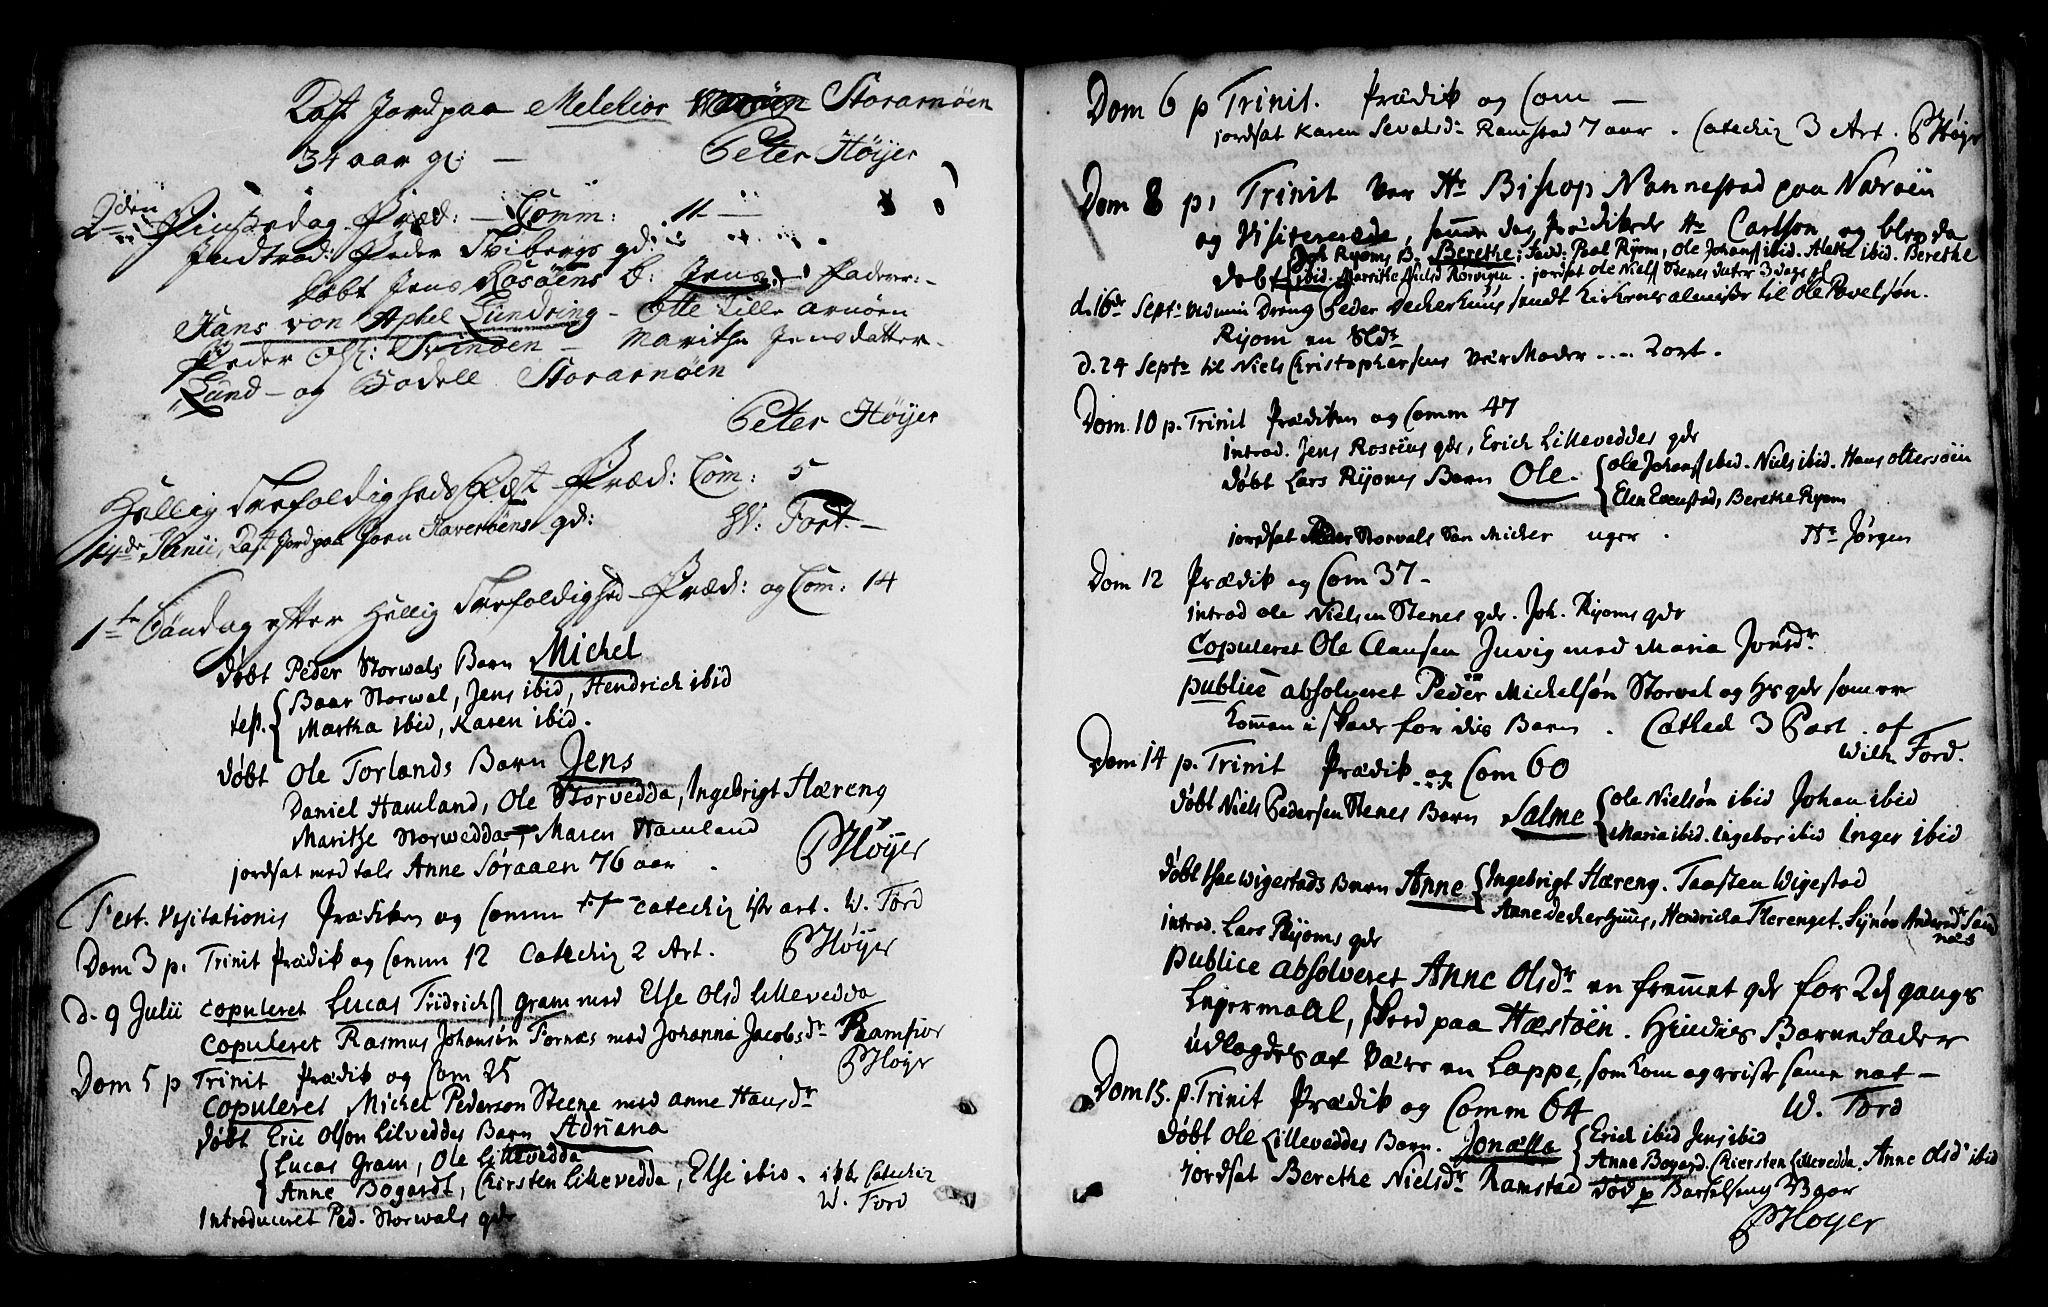 Kast Jord paa Melchior Storarnöen
34 aar gl: — Peter Höyer
2den Pintzedag Præd: — Comm: 11 —
Indtrod: Peder Svibergs gd:
Döbt Jens Rosöens B: Jens Fadere:
Hans von Aphel Lundring — Otte Lille arnöen
Peder Ols: Svinöen — Marithe Jensdatter
Lund — og Bodell Storarnöen
Peter Höyer
Hellig Trefoldigheds Fest Præd: Com: 5
14de Junii, Kast Jord paa Joen Haveröens gd: W: Fort —
1te Söndag efter Hellig Trefoldighed — Præd: og Com: 14
Döbt Peder Storwals Barn Michel
test. Baar Storwal, Jens ibid, Hendrich ibid
Martha ibid, Karen ibid.
Döbt Ole Torlands Barn Jens
Daniel Hamland, Ole Storvedda, Ingebrigt Hæreng
Marithe Storwedda, Maren Hamland
jordsat med tale Anne Söraaen 76 aar . PHöyer
Fest. Visitationis Prædiken og Comm catechiz 1ste art. W. Ford
Dom 3 p. Trinit Prædik og Comm 12 Catechiz 2 Art. PHöyer
D. 9 Julii copuleret Lucas Fridrichs gram med Else Olsd Lillevedda
copuleret Rasmus Johansön Fornæs med Johanna Jacobsdr Ramfior
PHöyr
Dom 5 p Trinit Prædik og Com 25
Copuleret Michel Pederson Steene med anne Hansdr
döbt Eric Olson Lilveddes Barn Adriana
Lucas Gram, Ole Lillevedda
Anne Bogardt, Chirsten Lillevedda, Else ibid. Catechiz
W. Ford
Introduceret Ped. Storwals qdr
Dom 6 p Trinit. Prædik og Com —
jordsat Karen Sevalsdr Ramstad 7 aar . Catechiz 3 Art. PHöyr
Dom 8 p. Trinit var Hr Bishop Nannestad paa Næröen
og visiterede, samme dag Prædikede Hr Carlson, og blev da
döbt Joh Ryoms B. Berethe, Fadd: Poul Ryom, Ole Johans ibid. Alethe ibid. Berethe
ibid. Marrithe Nielsd Rorvigen. jordsat Ole Niels Stenes dater 3 dage gl
d. 16de Sept: ved min Dreng Peder Deckerhuus sendt Kirkens almisse til Ole Povelsön.
Ryom en Sldr
D. 24 Septr til Niels Christophersens Værmoder .... 2 ort.
Dom. 10 p. Trinit Prædiken og Comm 47
introd. Jens Rosöens qdr, Erich Lilleveddes qdr
döbt Lars Ryoms Barn Ole. Ole Johans ibid. Niels ibid. Hans oltersöen
Elen Evenstad, Berethe Ryom
jordsat Peder Storvals Sön Michel uger . Hr Jörgen
Dom 12 Prædik og Com 37 —
introd ole Nielsen Stenes qdr. Joh. Ryoms qdr
Copuleret Ole Aansen Juvig med Maria Jonsdr.
publice absolveret Peder Michelsön Storval og Hs qdr som er
kommen i skade for dis Barn . Cathed 3 Part. af
Wilh Ford.
Dom 14 p. Trinit Prædik og Com 60
Döbt Niels Pedersen Stenes Barn Salme Ole Nielsön ibid Johan ibid
Maria ibid. Ingebor ibid Inger ibid
Döbt Wigestads Barn Anne Ingebrigt Hæreng. Taasten Wigestad
Anne Deckerhuus, Hendricha Flerenget. Synöv Andersdr Sand
næs
introd. Lars Ryoms qdr
publice absolveret Anne Olsdr en fremmet qdr for 2d gangs
Legermaall, skeed paa Hæstöen. Hendes Barnefader
udlagdes at være en Lappe, som kom og reiste same nat —
W. Ford
Dom 15. p. Trinit Prædik og Comm 64
Döbt Ole Lilleveddes Barn. Jonætta Erich ibid Jens ibid
Anne Bogard. Chiersten Lillevedda. Anne Olsdr ibid
Jordsat Berethe Nielsdr Ramstad död p Barselseng Baar
PHöyer